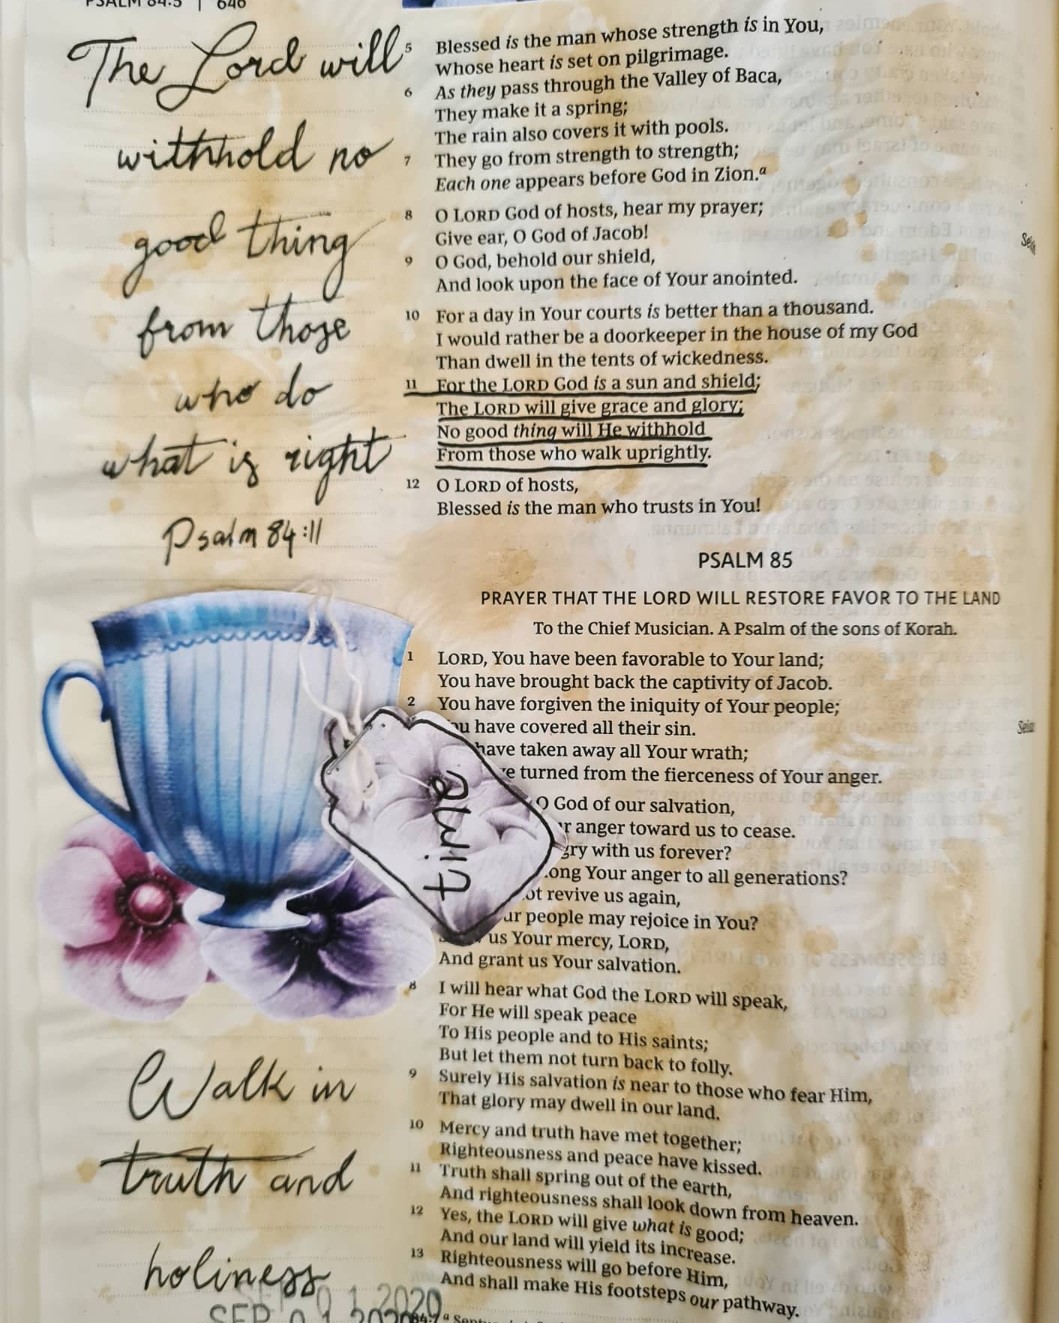 PSALM 84:5 | 646
The Lord will
withhold no
good thing
from those
who do
what is right
Psalm 84:11
5 Blessed is the man whose strength is in You,
Whose heart is set on pilgrimage.
6 As they pass through the Valley of Baca,
They make it a spring;
The rain also covers it with pools.
7 They go from strength to strength;
Each one appears before God in Zion.a
8 O LORD God of hosts, hear my prayer;
Give ear, O God of Jacob!
9 O God, behold our shield,
And look upon the face of Your anointed.
10 For a day in Your courts is better than a thousand.
I would rather be a doorkeeper in the house of my God
Than dwell in the tents of wickedness.
11 For the LORD God is a sun and shield;
The LORD will give grace and glory;
No good thing will He withhold
From those who walk uprightly.
12 O LORD of hosts,
Blessed is the man who trusts in You!
PSALM 85
PRAYER THAT THE LORD WILL RESTORE FAVOR TO THE LAND
To the Chief Musician. A Psalm of the sons of Korah.
1 LORD, You have been favorable to Your land;
You have brought back the captivity of Jacob.
2 You have forgiven the iniquity of Your people;
have covered all their sin.
have taken away all Your wrath;
turned from the fierceness of Your anger.
O God of our salvation,
anger toward us to cease.
with us forever?
Your anger to all generations?
revive us again,
people may rejoice in You?
us Your mercy, LORD,
And grant us Your salvation.
8 I will hear what God the LORD will speak,
For He will speak peace
To His people and to His saints;
But let them not turn back to folly.
9 Surely His salvation is near to those who fear Him,
That glory may dwell in our land.
10 Mercy and truth have met together;
Righteousness and peace have kissed.
11 Truth shall spring out of the earth,
And righteousness shall look down from heaven.
12 Yes, the LORD will give what is good;
And our land will yield its increase.
13 Righteousness will go before Him,
And shall make His footsteps our pathway.
time
Walk in
truth and
holiness
SEP 01 2020
SEP 01 2020